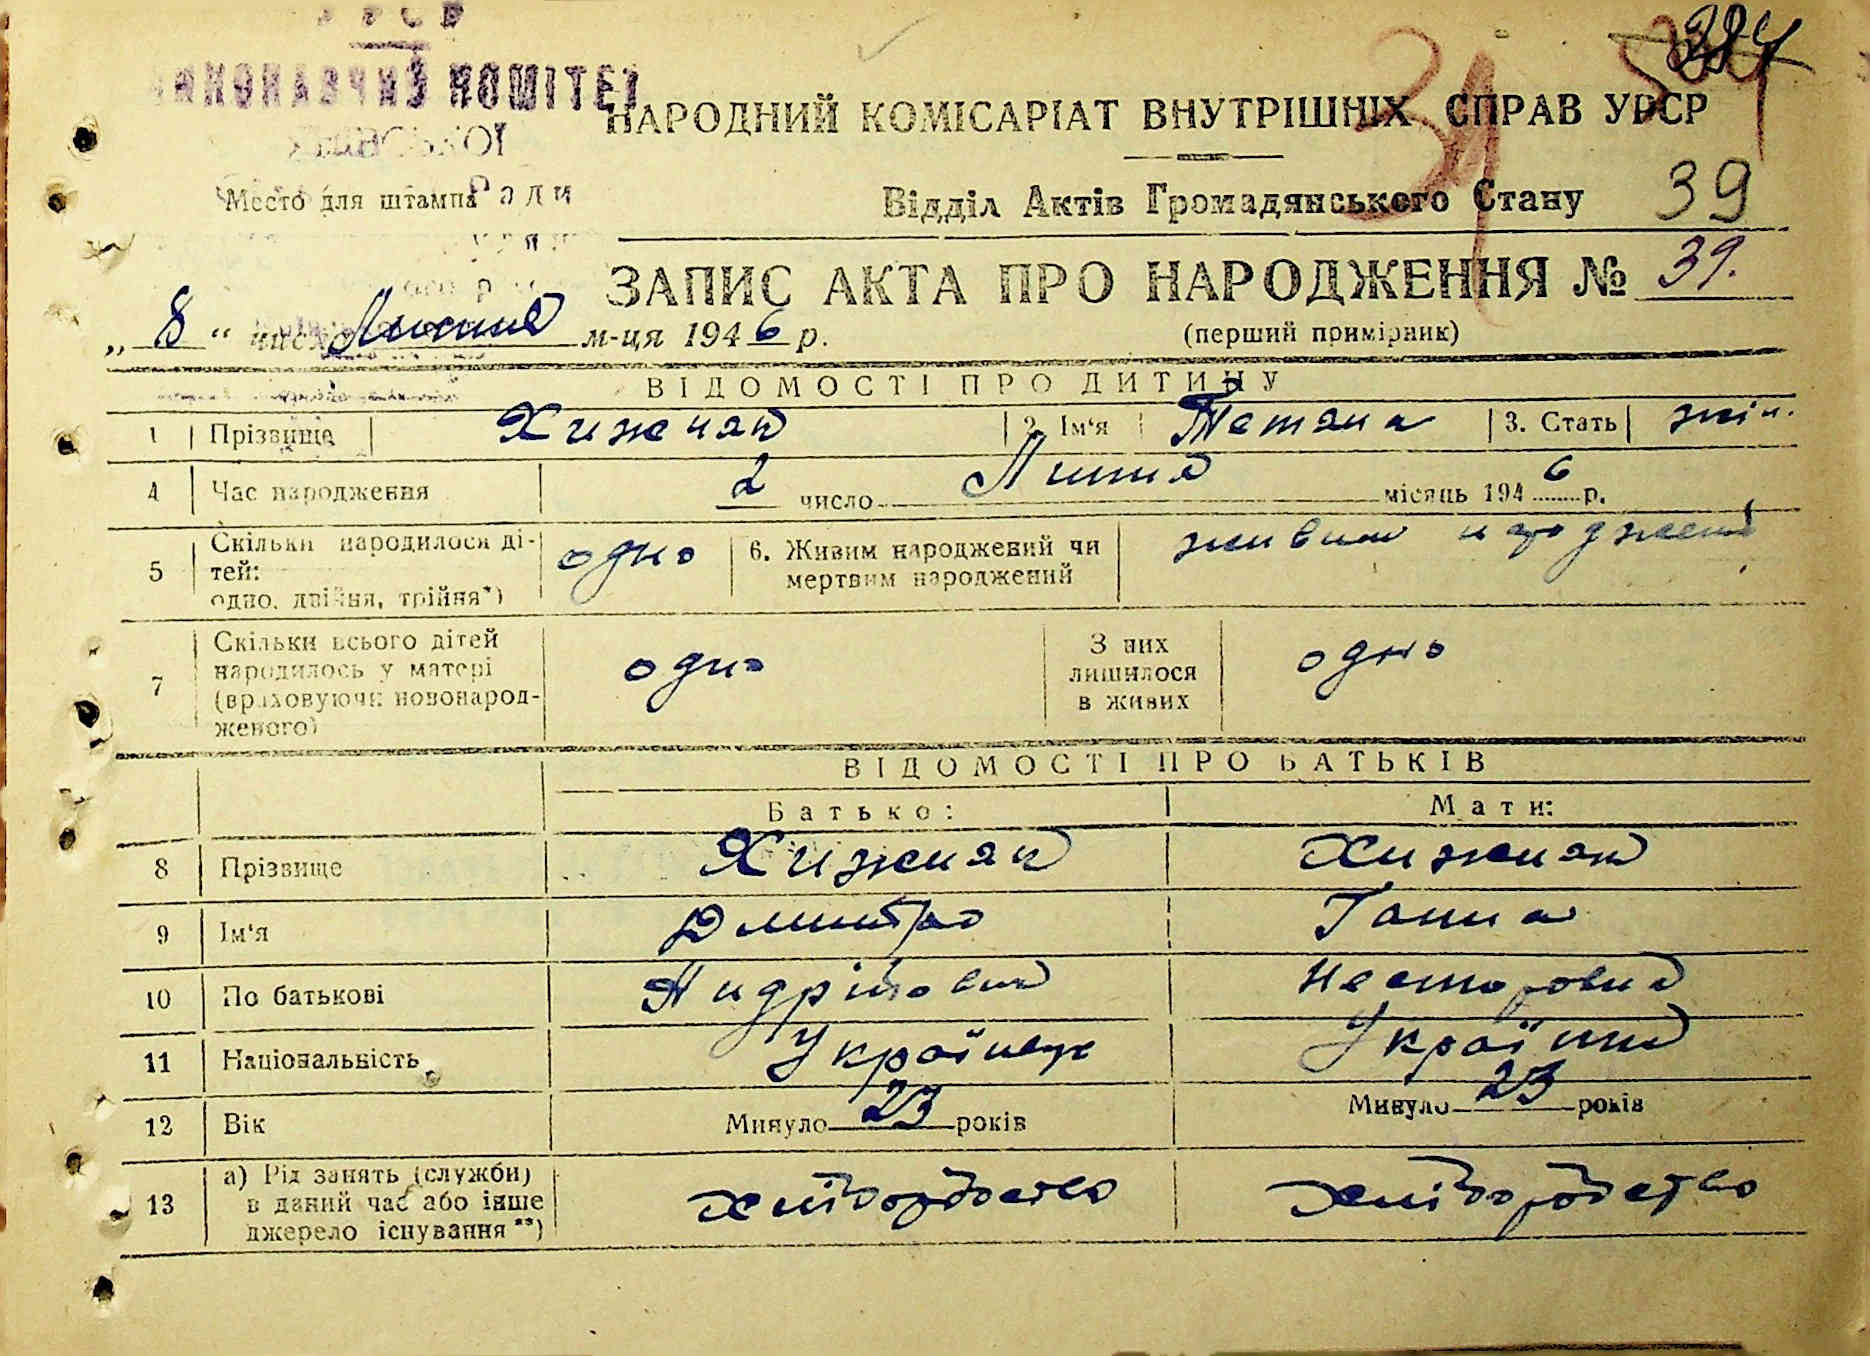 УРСР
ВИКОНАВЧИЙ КОМІТЕТ
НАРОДНИЙ КОМІСАРІАТ ВНУТРІШНІХ СПРАВ УРСР
Место для штампа
Ради
Відділ Актів Громадянського Стану 39
ЗАПИС АКТА ПРО НАРОДЖЕННЯ № 39.
„ 8 “ число Липня м-ця 1946 р. (перший примірник)
ВІДОМОСТІ ПРО ДИТИНУ
1 Прізвище Хижняк 2. Ім'я Тетяна 3. Стать жін.
4 Час народження 2 число Липня місяць 1946 р.
5 Скільки народилося ді-
тей:
одно, двійня, трійня*) одно
6. Живим народжений чи
мертвим народжений живим народжений
7 Скільки всього дітей
народилось у матері
(враховуючи новонарод-
женого) одно
З них
лишилося
в живих одно
ВІДОМОСТІ ПРО БАТЬКІВ
Батько: Мати:
8 Прізвище Хижняк Хижняк
9 Ім'я Дмитро Ганна
10 По батькові Андрійович Несторовна
11 Національність Українець Українка
12 Вік Минуло 23 років Минуло 23 років
13 а) Рід занять (служби)
в даний час або інше
джерело існування**) хліборобство хліборобство